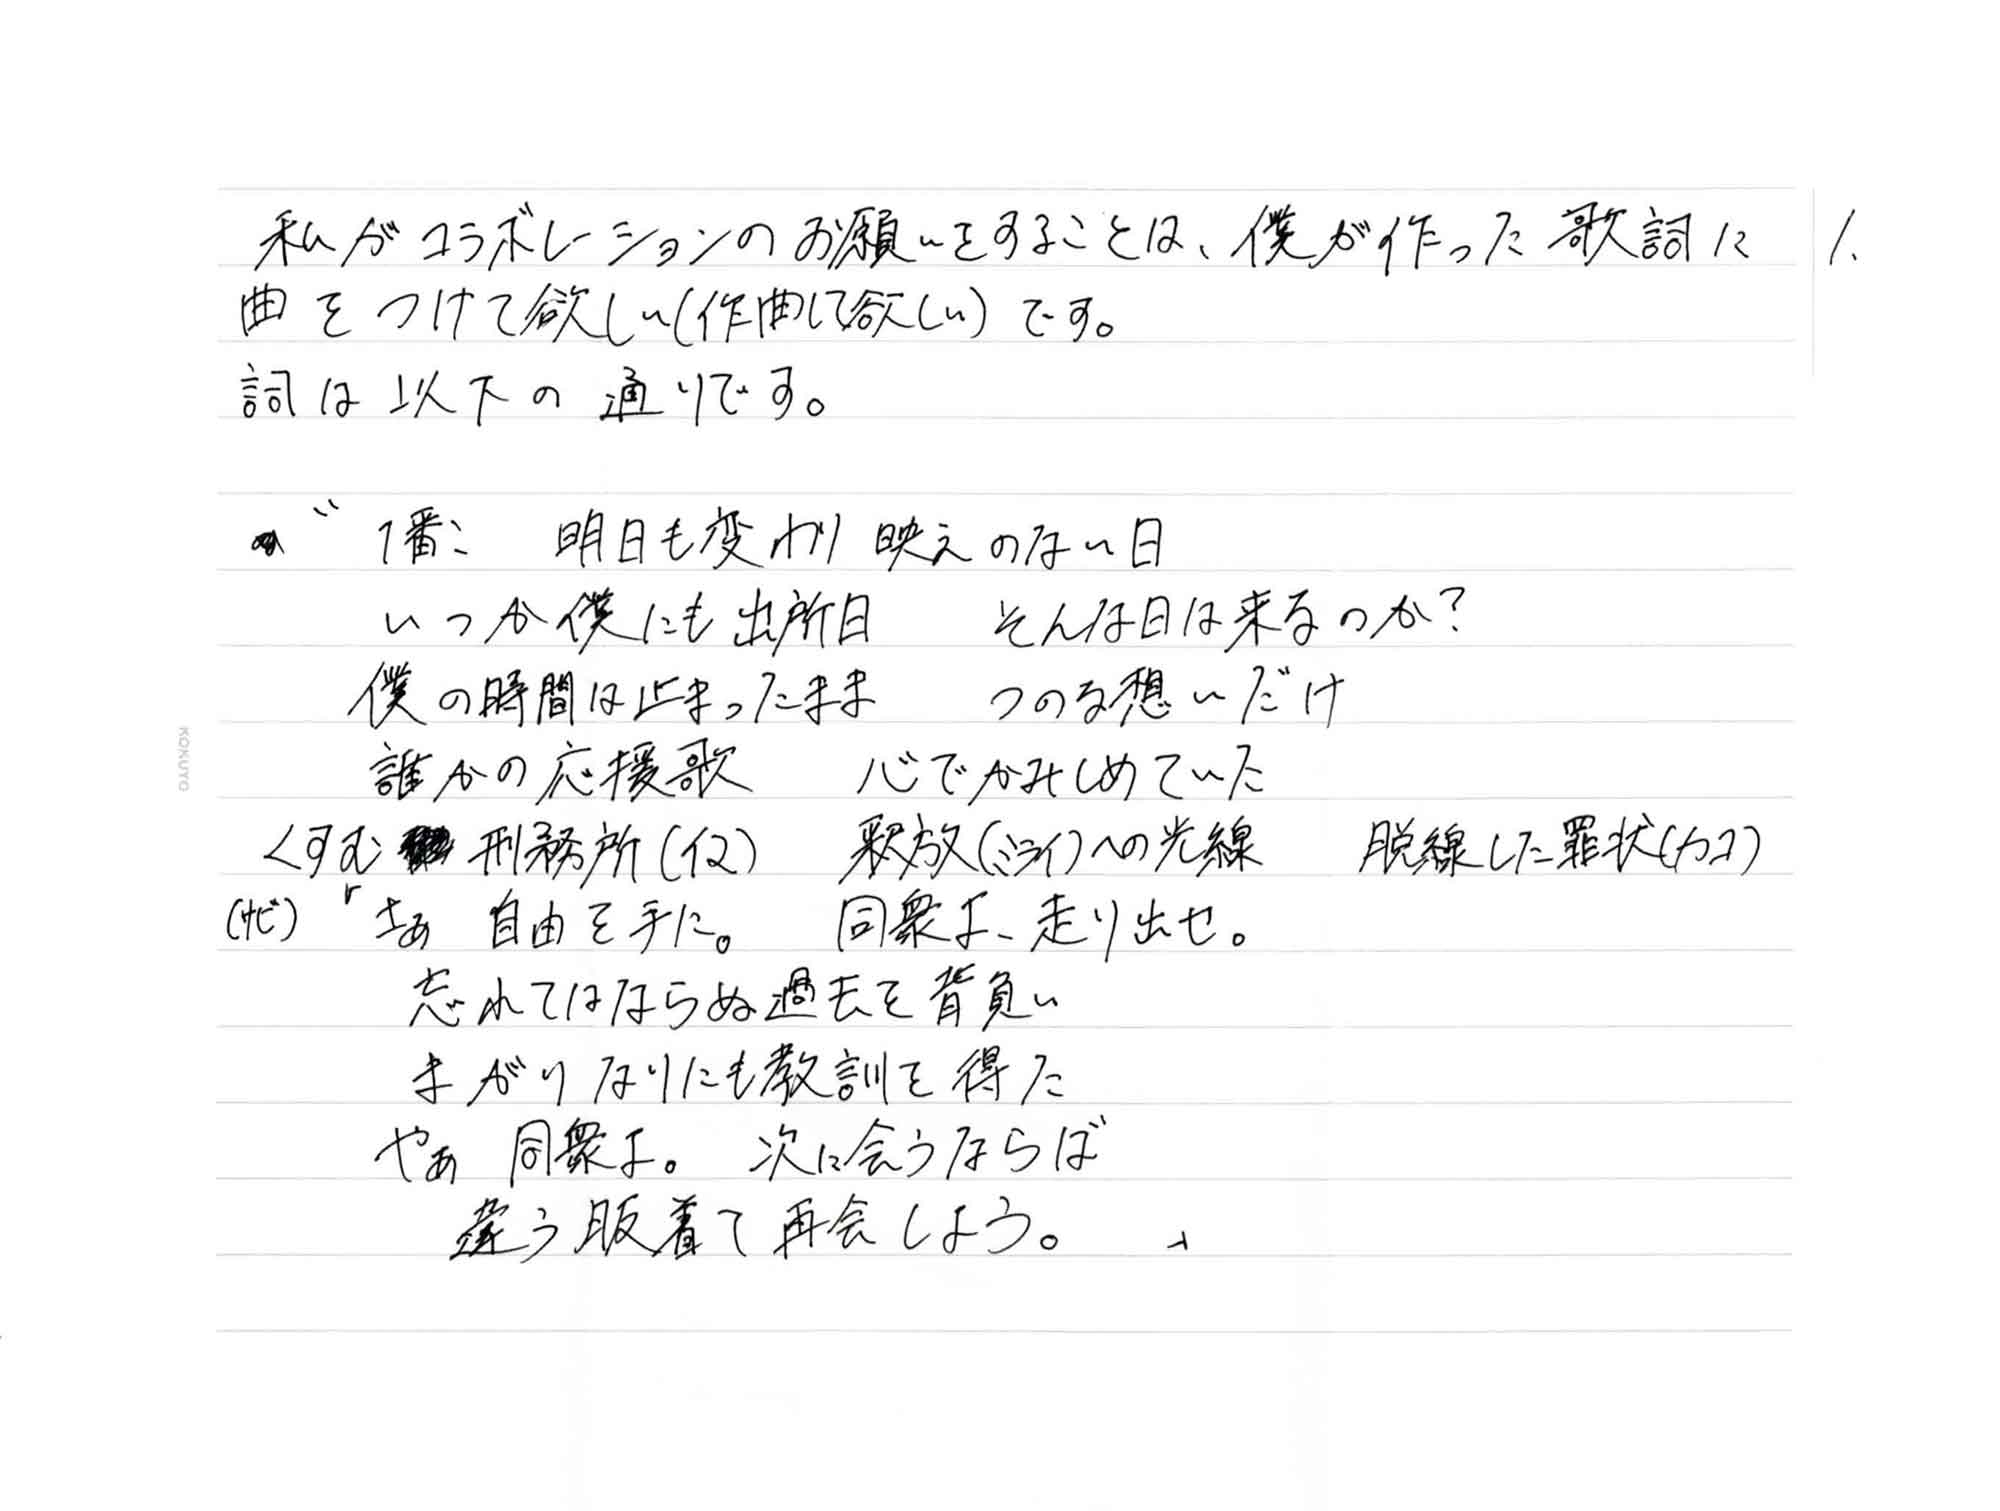 私がコラボレーションのお願いをすることは、僕が作った歌詞に 1.
曲をつけて欲しい(作曲して欲しい)です。
詞は以下の通りです。
〃 1番: 明日も変わり映えのない日
いつか僕にも出所日 そんな日は来るのか?
僕の時間は止まったまま つのる想いだけ
誰かの応援歌 心でかみしめていた
くすむ 刑務所(イマ) 釈放(ミライ)への光線 脱線した罪状(カコ)
(サビ)「さぁ 自由を手に。 同衆よ、走り出せ。
忘れてはならぬ過去を背負い
まがりなりにも教訓を得た
やぁ 同衆よ。 次に会うならば
違う服着て再会しよう。 」
KOKUYO